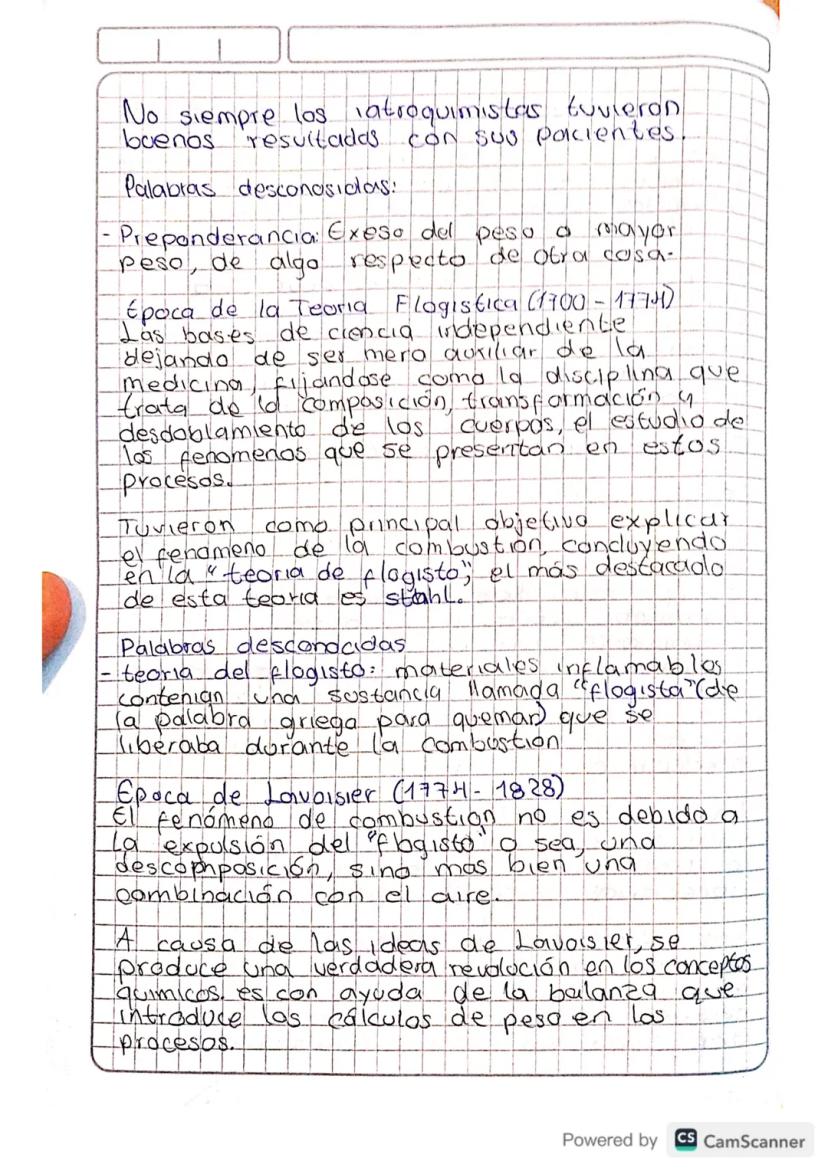 No siempre los iatroquimistas tuvieron
buenos resultados con sus pacientes.
Palabras desconosidas:
- Preponderancia: Exeso del peso o mayor
peso, de algo respecto de otra cosa.
Época de la Teoria Flogistica (1700 - 1774)
Las bases de ciencia independiente
dejando de ser mero auxiliar de la
medicina, fijandose como la disciplina que
trata de la composición, transformación y
desdoblamiento de los cuerpos, el estudio de
los fenomenos que se presentan en estos
procesos.
Tuvieron como principal objetivo explicar
el fenómeno de la combustión, concluyendo
en la "teoria de flogisto", el más destacado
de esta teoria es stahl.
Palabras desconocidas
- teoria del flogisto: materiales inflamables
contenian una sustancia llamada "flogisto" (de
la palabra griega para quemar) que se
liberaba durante la combustion
Epoca de Lavoisier (1774 - 1828)
El fenómeno de combustion no es debido a
la expulsión del "flogisto" o sea, una
descomposición, sino mas bien una
combinación con el aire.
A causa de las ideas de Lavoisier, se
produce una verdadera revolución en los conceptos
quimicos. es con ayuda de la balanza que
introduce los cálculos de peso en los
procesos.
Powered by CS CamScanner